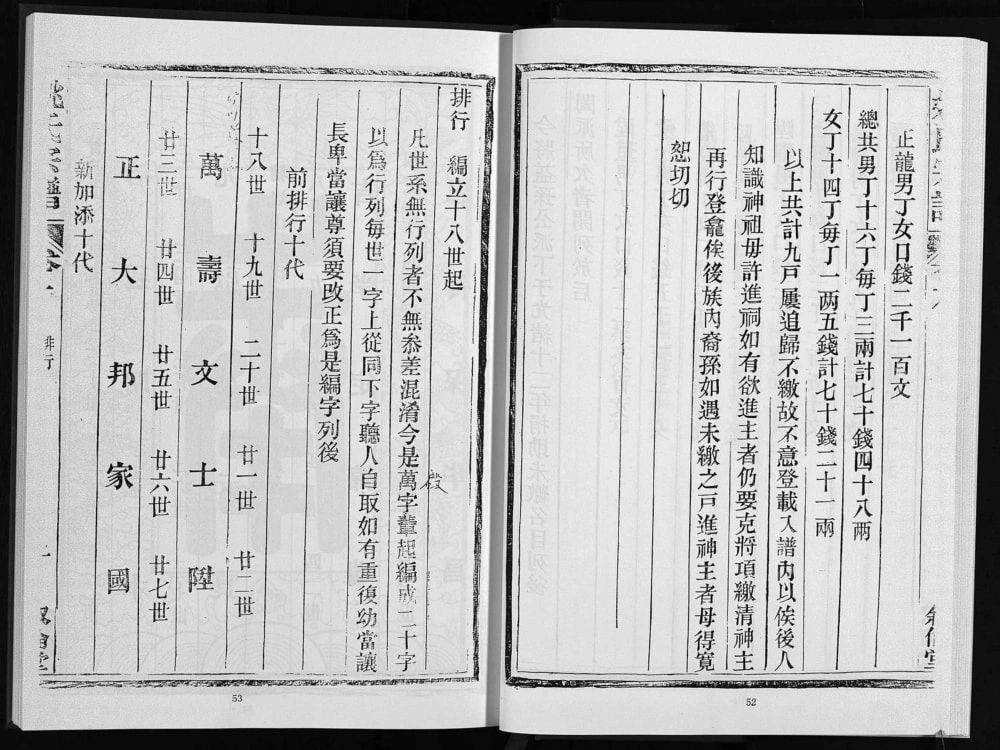 正龍男丁女口錢二千一百文
總共男丁十六丁每丁三兩計七十錢四十八兩
女丁十四丁每丁一两五錢計七十錢二十一兩
以上共計九戸屢追歸不繳故不意登載入譜內以俟後人
知識神祖毋許進祠如有欲進主者仍要克將項繳清神主
再行登龕俟後族內裔孫如遇未繳之戸進神主者毋得寬
恕切切
52
排行 編立十八世起
凡世系無行列者不無叅差混淆今是萬字輩起編成二十字
段
以爲行列每世一字上從同下字聽人自取如有重復幼當讓
長卑當讓尊須要改正爲是編字列後
前排行十代
十八世 十九世 二十世 廿一世 廿二世
萬 壽 文 士 陞
廿三世 廿四世 廿五世 廿六世 廿七世
正 大 邦 家 國
新加添十代
排行
53